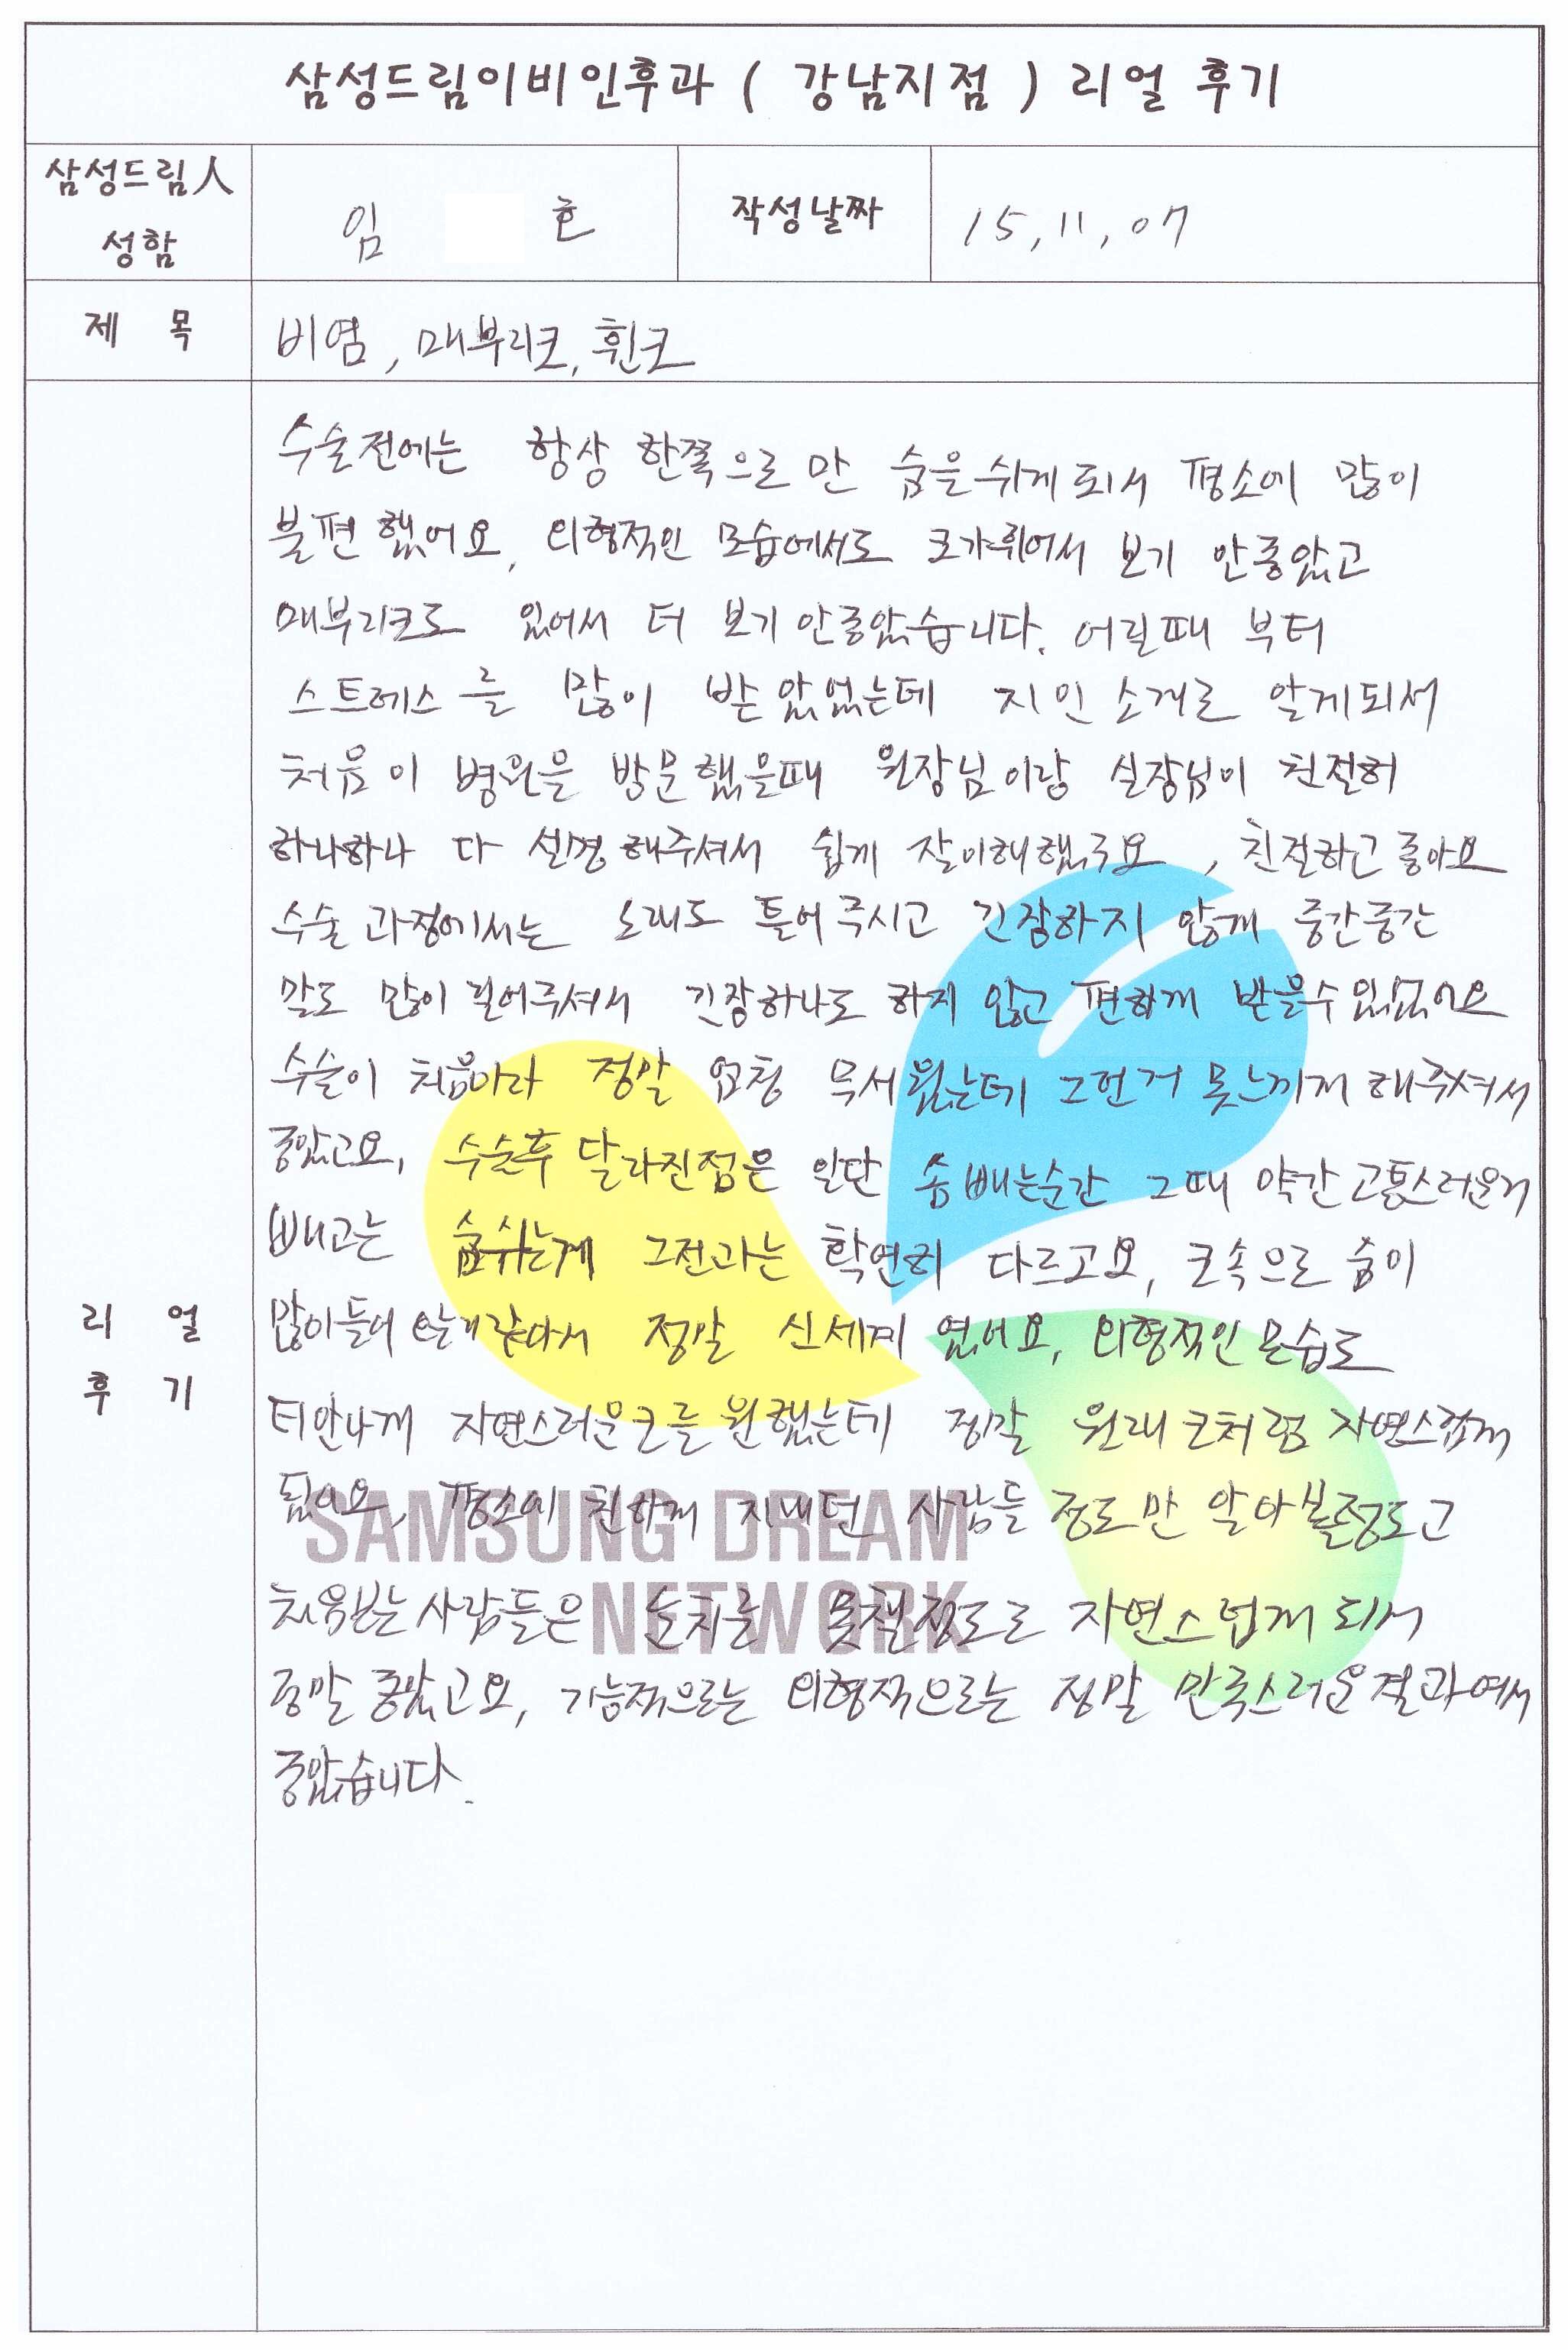 삼성드림이비인후과 ( 강남지점 ) 리얼 후기
삼성드림人
성함
임 호
작성날짜
15, 11, 07
제 목
비염, 매부리코, 휜코
리 얼
후 기
수술전에는 항상 한쪽으로 만 숨을쉬게 되서 평소에 많이
불편 했어요, 외형적인 모습에서도 코가휘어서 보기 안좋았고
매부리코도 있어서 더 보기 안좋았습니다. 어릴때 부터
스트레스 를 많이 받 았었는데 지인 소개로 알게되서
처음 이 병원을 방문했을때 원장님이랑 실장님이 친절히
하나하나 다 설명 해주셔서 쉽게 잘이해했구요, 친절하고 좋아요
수술 과정에서는 노래도 틀어 주시고 긴장하지 않게 중간중간
말도 많이 걸어주셔서 긴장하나도 하지 않고 편하게 받을수있었어요
수술이 처음이라 정말 엄청 무서웠는데 그런거 못느끼게 해주셔서
좋았고요, 수술후 달라진점은 일단 솜빼는순간 그때 약간고통스러운거
빼고는 숨쉬는게 그전과는 확연히 다르고요, 코속으로 숨이
많이들어 오는거같아서 정말 신세계 였어요, 외형적인 모습도
티안나게 자연스러운코를 원했는데 정말 원래 코처럼 자연스럽게
됬어요, 평소에 친하게 지내던 사람들 정도만 알아볼정도고
처음보는사람들은 눈치를 못챌정도로 자연스럽게 되서
정말 좋았고요, 기능적으로는 외형적으로는 정말 만족스러운결과여서
좋았습니다.
SAMSUNG DREAM
NETWORK